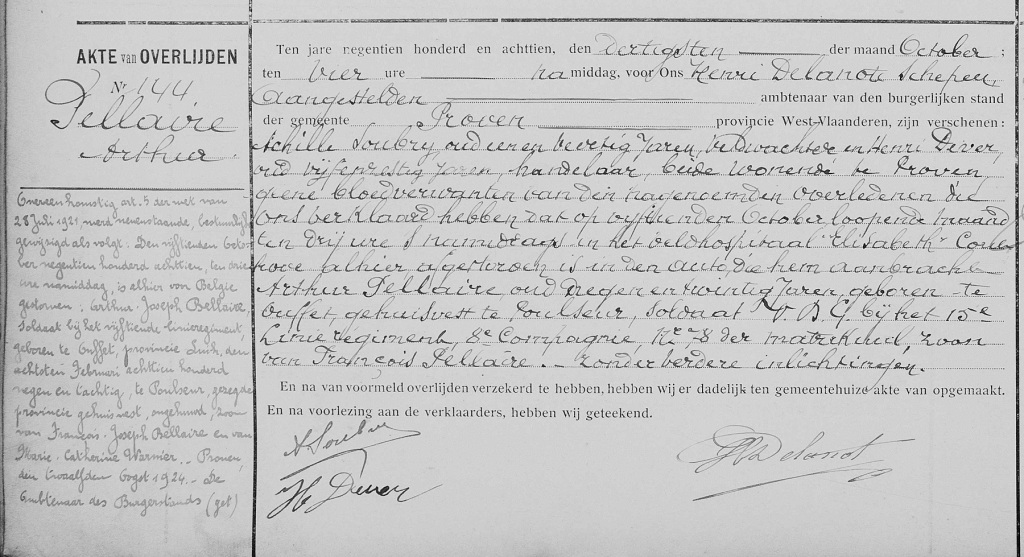 AKTE van OVERLIJDEN
Nr 144
Pellaire
Arthur.
Overeenkomstig art. 5 der wet van
28 Juli 1921, werd nevenstaande,
gewijzigd als volgt: Den vijftienden Octo-
ber negentien honderd achttien, ten drie
ure namiddag, is alhier voor Belgie
gestorven: Arthur Joseph Bellaire,
soldaat bij het vijftiende linieregiment,
geboren te Ouffet, provincie Luik, den
achtsten Februari achttien honderd
negen en tachtig, te Poulseur, gezegde
provincie gehuisvest, ongehuwd, zoon
van François-Joseph Bellaire en van
Marie-Catherine Warnier. - Proven,
den twaalfden Oogst 1924. - De
Ambtenaar des Burgerstands (get)
Ten jare negentien honderd en achttien, den Dertigsten der maand October;
ten Vier ure na middag, voor Ons Henri Delanote Schepen,
Aangestelden ambtenaar van den burgerlijken stand
der gemeente Proven provincie West-Vlaanderen, zijn verschenen:
Achille Soubry, oud een en veertig Jaren, veldwachter en Henri Dever,
oud vijfenzestig Jaren, handelaar, beide wonende te Proven,
geene bloedverwanten van den nagenoemden overledenen die
ons verklaard hebben dat op vijftienden October loopende maand
ten drij ure 's namiddags in het veldhospitaal Elisabeth Cou
hove alhier, afgestorven is in den auto, die hem aanbracht
Arthur Pellaire, oud negen en twintig Jaren, geboren te
Ouffet, gehuisvest te Poulseur, soldaat V. D. G. bij het 15e
Linie regiment, 8e Compagnie, Nr 78 der matrikuul, zoon
van François Pellaire. - Zonder verdere inlichtingen.
En na van voormeld overlijden verzekerd te hebben, hebben wij er dadelijk ten gemeentehuize akte van opgemaakt.
En na voorlezing aan de verklaarders, hebben wij geteekend.
A Soubry
H Delanote
H Dever